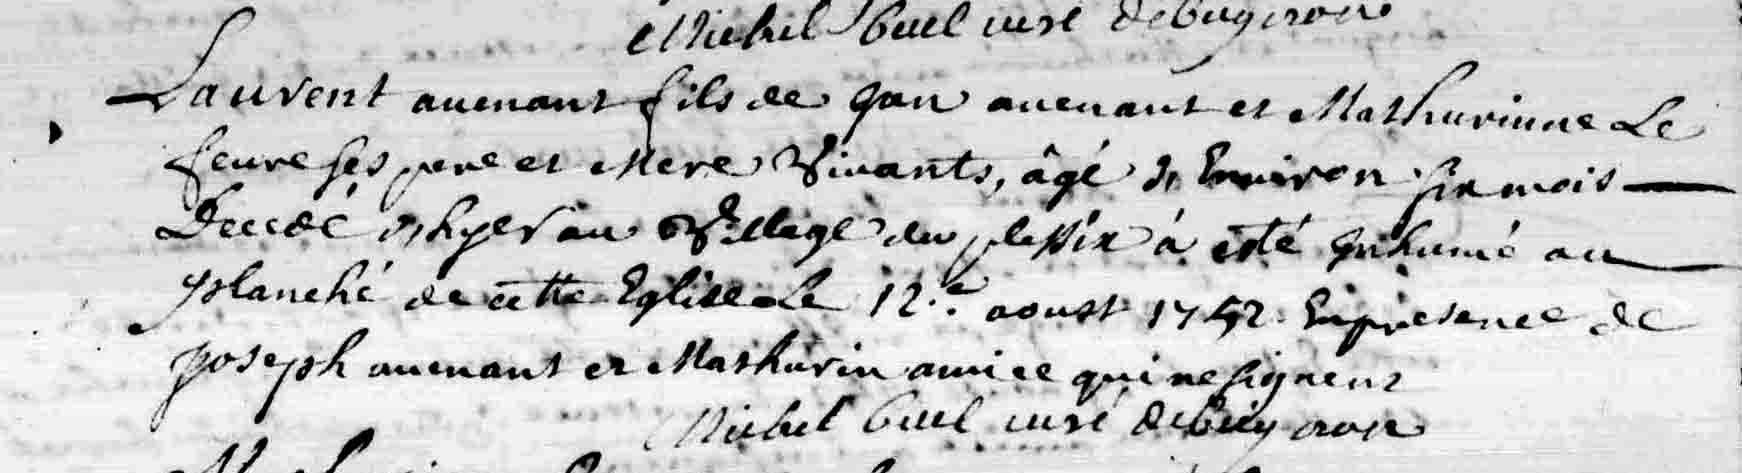 Michel Buel curé de buy cron
Laurent auenant fils de Jan auenant et Mathurinne Le
feure ses pere et Mere Viuants, âgé d'Enuiron six mois
Decedé d'hyer au Village du plessix à esté Inhumé au
planché de cette Eglise Le 12.e aoust 1752. En presence de
Joseph auenant et Mathurin amice qui ne signent
Michel Buel curé de